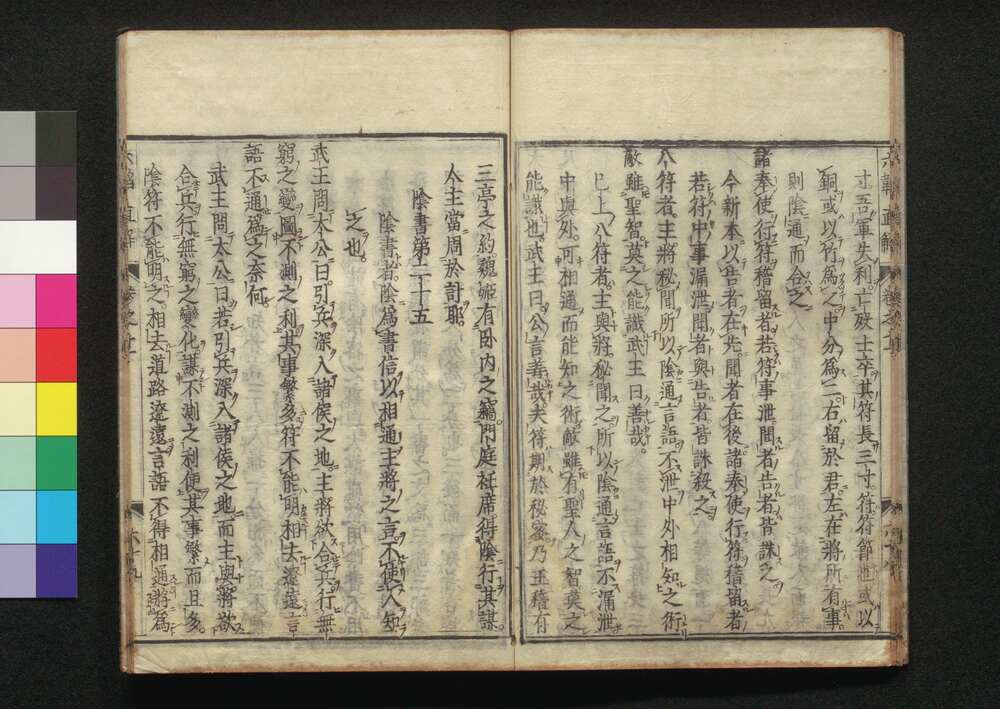 寸吾軍失利亡殁士卒其符長三寸符符節也或以
銅或以竹爲之中分爲二右留於君左在將所有事
則陰通而合之
諸奉使行符稽留者若符事泄聞者告者皆誅之
今新本以告者在先聞者在後諸奉使行符稽留者
若符中事漏泄聞者與告者皆誅殺之
八符者主將秘聞所以陰通言語不泄中外相知之術
敵雖聖智莫之能識武王曰善哉
已上八符者主與將秘聞之所以陰通言語不漏泄
中與外可相通而能知之術敵雖有聖人之智莫之
能識也武王曰公言善哉夫符期於秘密乃王稽有
三亭之約魏姬有卧内之竊門庭衽席得陰行其謀
人主當周於計耶
陰書第二十五
陰書者陰爲書信以相通主將之言不使人知
之也
武王問太公曰引兵深入諸侯之地主將欲合兵行無
窮之變圖不測之利其事繁多符不能明相去遼遠言
語不通爲之奈何
武王問太公曰若引兵深入諸侯之地而主與將欲
合兵行無窮之變化謀不測之利便其事繁而且多
陰符不能明之相去道路遼遠言語不得相通將爲